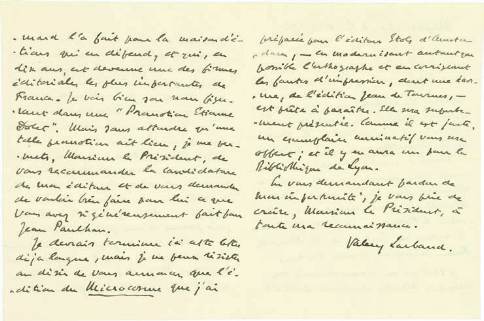 -mard l'a fait pour la maison d'é-
-tions qui en dépend, et qui, en
dix ans, est devenue une des firmes
éditoriales les plus importantes de
France. Je vois bien son nom figu-
rant dans une "Promotion Etienne
Dolet". Mais sans attendre qu'une
telle promotion ait lieu, je me per-
-mets, Monsieur le Président, de
vous recommander la candidature
de mon éditeur et de vous demander
de vouloir bien faire pour lui ce que
vous avez si généreusement fait pour
Jean Paulhan.
Je devrais terminer ici cette lettre
déjà longue, mais je ne peux résister
au désir de vous annoncer que l'é-
-dition du Microcosme que j'ai
préparée pour l'éditeur Stols d'Amster-
dam, — en modernisant autant que
possible l'orthographe et en corrigeant
les fautes d'impression, dont une
de l'édition Jean de Tournes, —
est prête à paraître. Elle sera superbe-
ment présentée. Comme il est juste,
un exemplaire nominatif vous sera
offert ; et il y en aura un pour la
Bibliothèque de Lyon.
En vous demandant pardon de
mon importunité, je vous prie de
croire, Monsieur le Président, à
toute ma reconnaissance.
Valery Larbaud.